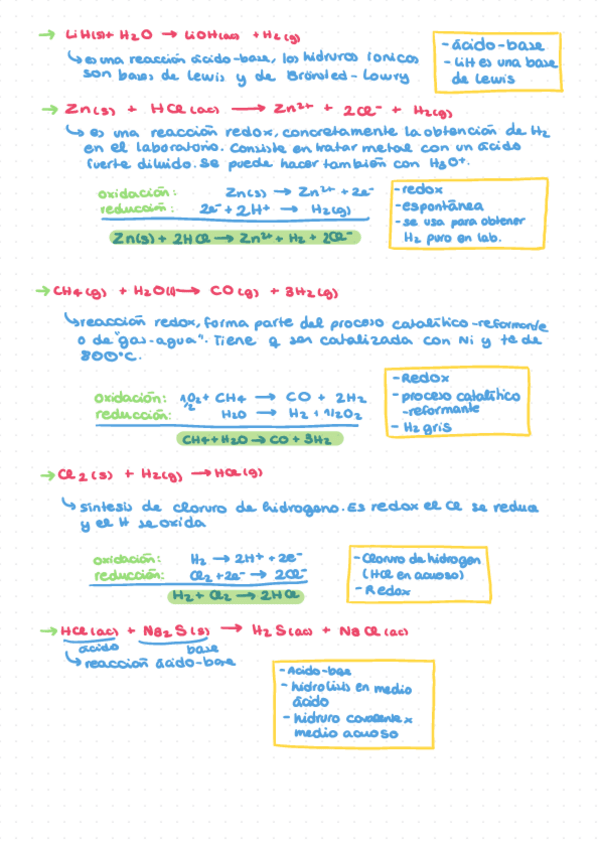 → LiH(s) + H₂O → LiOH(ac) + H₂(g)
↳ es una reacción ácido-base, los hidruros iónicos
son bases de Lewis y de Brönsted-Lowry
- ácido-base
- LiH es una base
de Lewis
→ Zn(s) + HCl(ac) → Zn²⁺ + 2Cl⁻ + H₂(g)
↳ es una reacción redox, concretamente la obtención de H₂
en el laboratorio. Consiste en tratar metal con un ácido
fuerte diluido. Se puede hacer también con H₃O⁺.
oxidación: Zn(s) → Zn²⁺ + 2e⁻
reducción: 2e⁻ + 2H⁺ → H₂(g)
Zn(s) + 2HCl → Zn²⁺ + H₂ + 2Cl⁻
- redox
- espontánea
- se usa para obtener
H₂ puro en lab.
→ CH₄(g) + H₂O(l) → CO(g) + 3H₂(g)
↳ reacción redox, forma parte del proceso catalítico-reformante
o de "gas-agua". Tiene q ser catalizada con Ni y tª de
800°C.
oxidación: 1/2 O₂ + CH₄ → CO + 2H₂
reducción: H₂O → H₂ + 1/2O₂
CH₄ + H₂O → CO + 3H₂
- Redox
- proceso catalítico
-reformante
- H₂ gris
→ Cl₂(s) + H₂(g) → HCl(g)
↳ síntesis de cloruro de hidrogeno. Es redox el Cl se reduce
y el H se oxida
oxidación: H₂ → 2H⁺ + 2e⁻
reducción: Cl₂ + 2e⁻ → 2Cl⁻
H₂ + Cl₂ → 2HCl
- Cloruro de hidrogen
(HCl en acuoso)
- Redox
→ HCl(ac) + Na₂S(s) → H₂S(ac) + NaCl(ac)
ácido base
↳ reacción ácido-base
- Acido-base
- hidrolisis en medio
ácido
- hidruro covalente x
medio acuoso